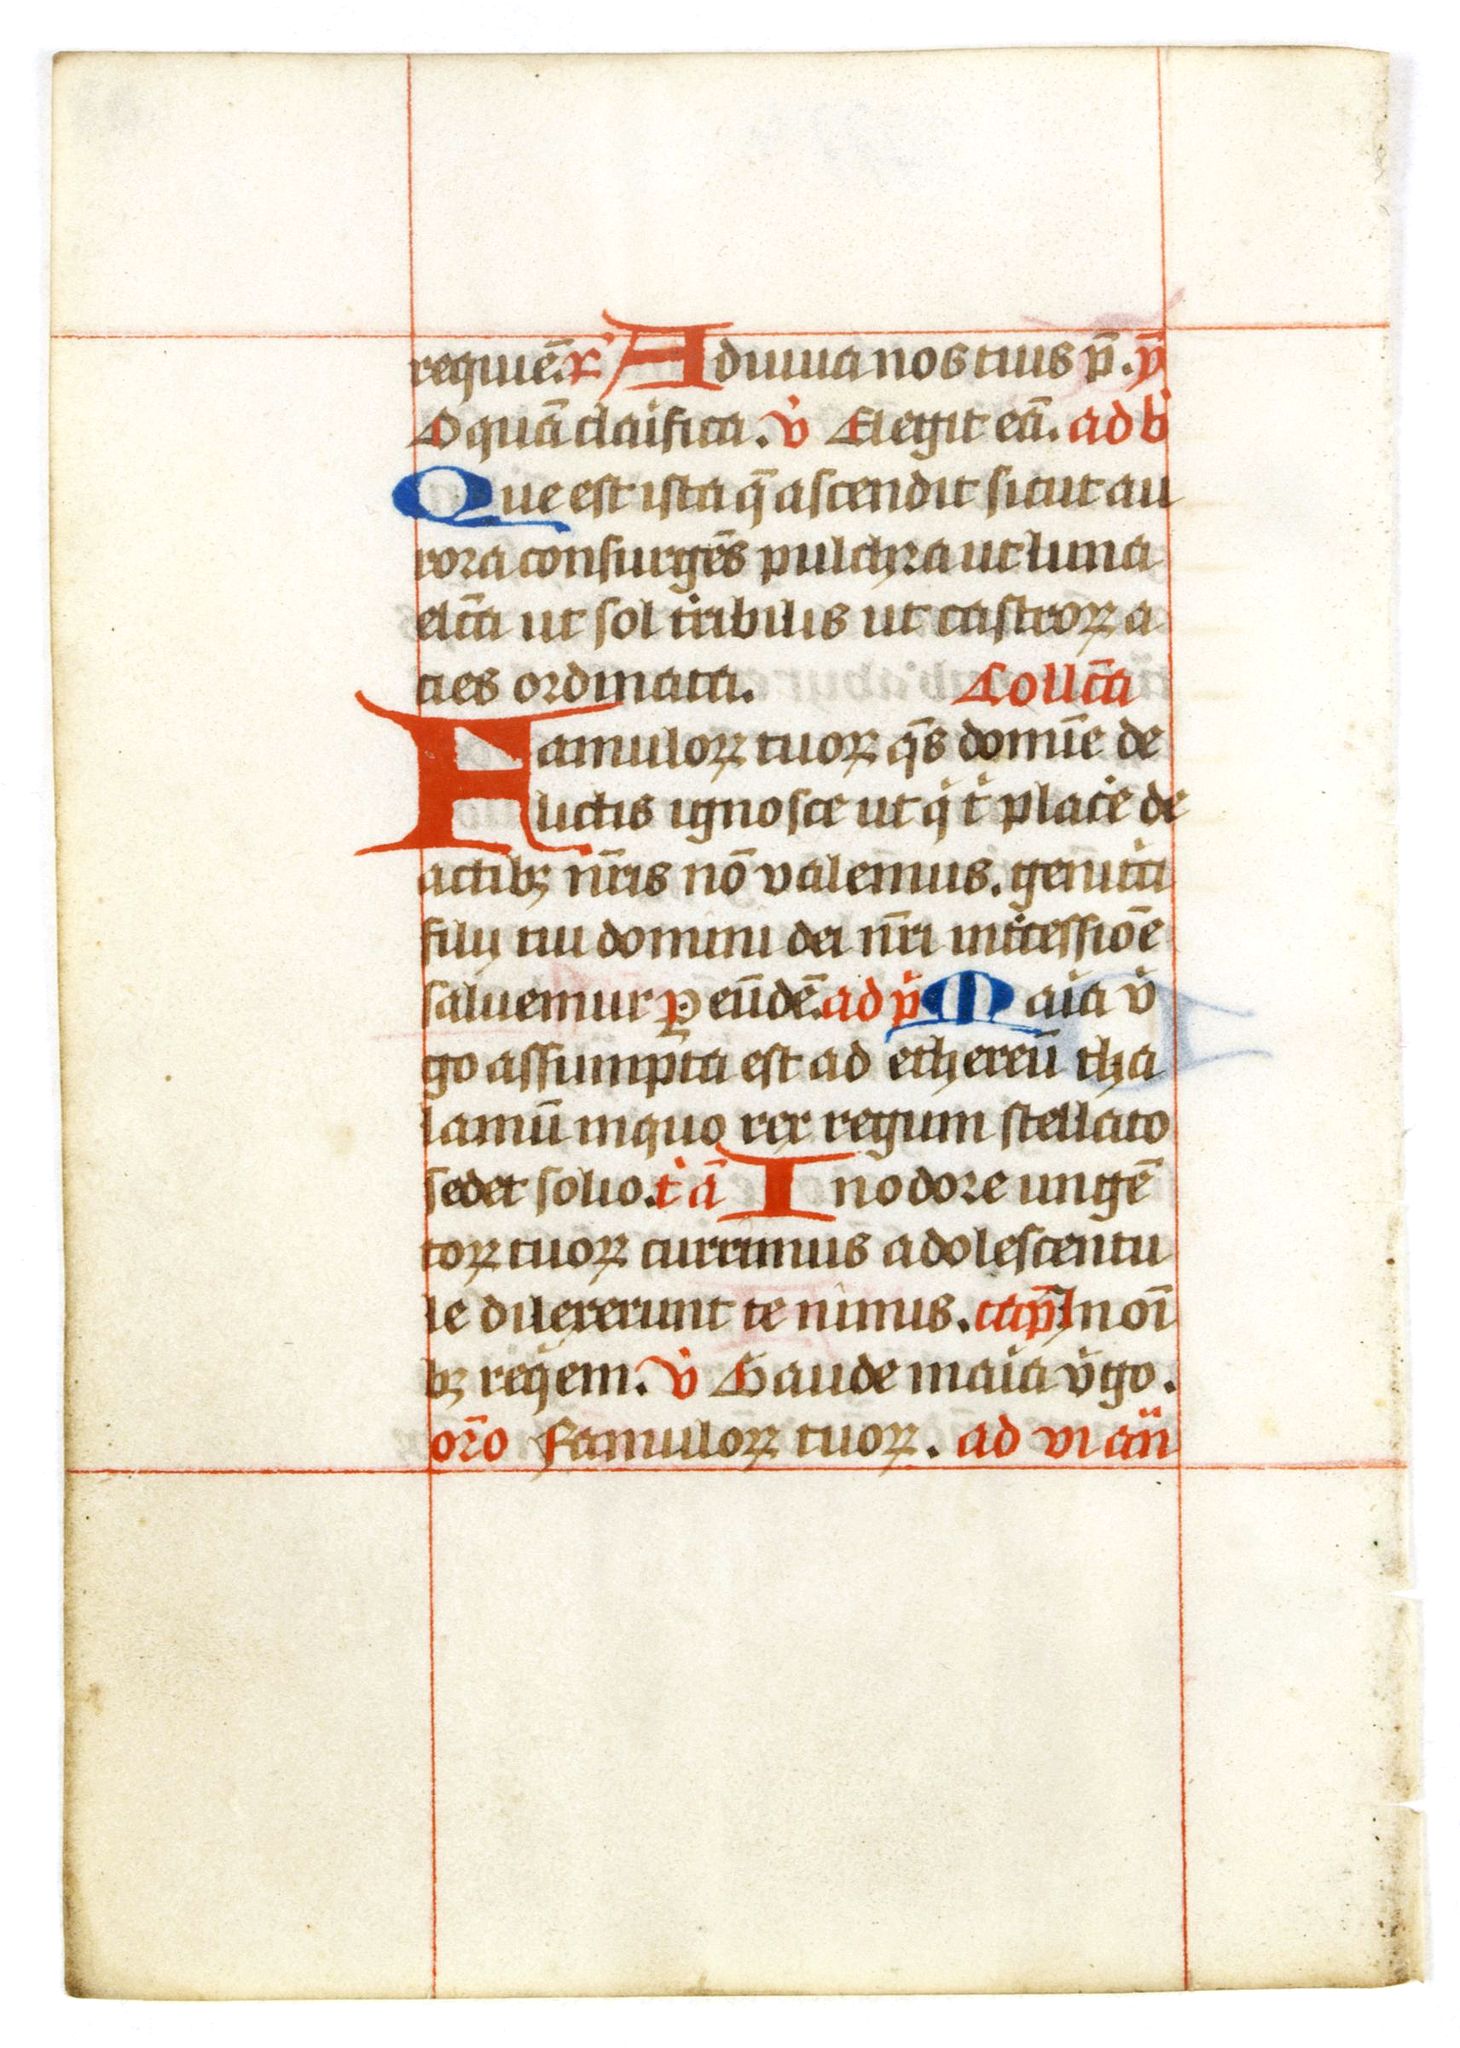 requiē. r̕ Adiuua nos tuis p̄. ym̄
O quā claͥfica. v̕ Elegit eā. ad b̄
Que est ista q̄ ascendit sicut au
rora consurgēs pulchra ut luna
elc̄a ut sol tͥribilis ut castroꝝ a
cies ordinata. Collc̄a
Famuloꝝ tuoꝝ q̄s domīe de
lictis ignosce ut qͥ tͥ placͤe de
actibꝫ nr̄is nō valemus. genit̕cͥ
filij tui domini dei nr̄i int̕cessiōe
saluemur ꝑ eūdē. ad pͥ Maͥia vͥ
go assumpta est ad ethereū tha
lamū in quo rex regum stellato
sedet solio. tͥ ā In odore ungē
toꝝ tuoꝝ currimus adolescentu
le dilexerunt te nimus. cap̄ In oī
bꝫ reqͥem. v̕ Gaude maͥia vͥgo.
or̄o Famuloꝝ tuoꝝ. ad vi an̄